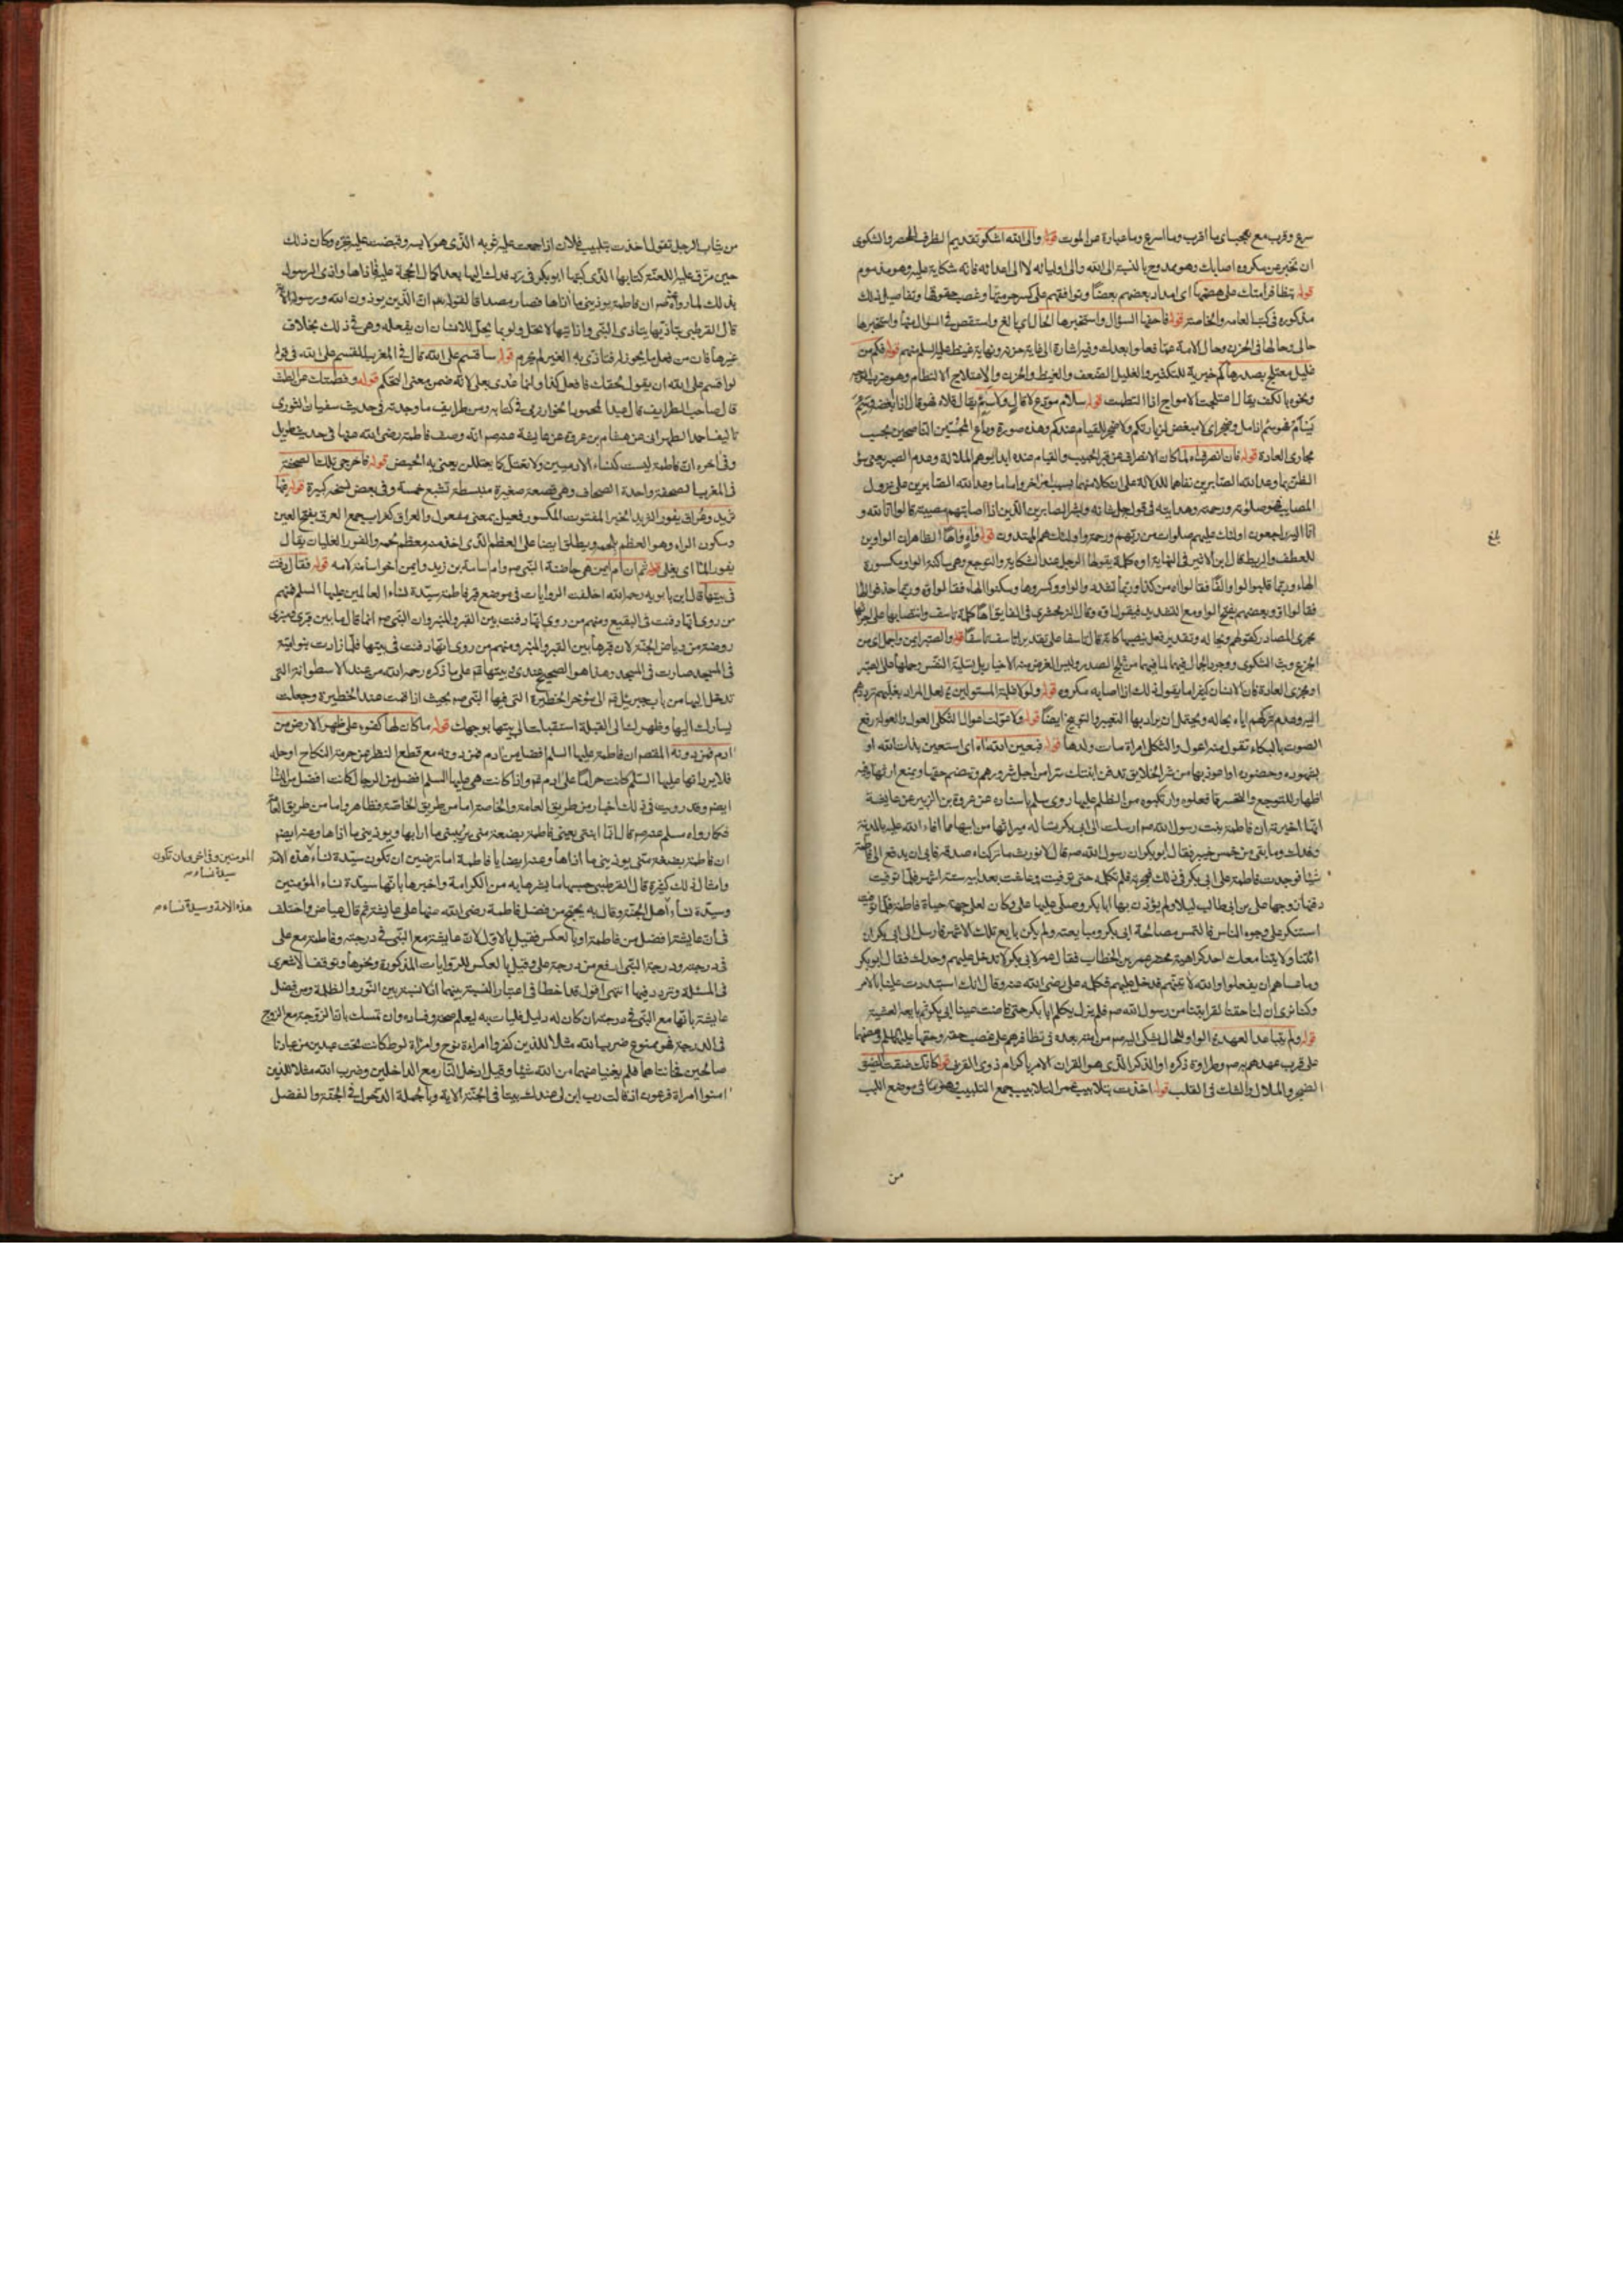 سرع وقرب مع تعجب اى ما اقرب وما اسرع وما عبارة عن الموت قوله والى الله اشكو تقديم الظرف للحصر والشكوى
ان تخبر عن مكروه اصابك وهو ممدوح بالنسبة الى الله والى اوليائه لا الى اعدائه فانه شكاية عليه وهو مذموم
قوله بتظافر امتك على هضمها اى امداد بعضهم بعضا وتوافقهم على كسر حرمتها وغصب حقوقها وتفاصيل ذلك
مذكورة فى كتب العامة والخاصة قوله فاحفها السؤال واستخبرها الحال اى بالغ واستقص فى السؤال عنها واستخبرها
حالى وحالها فى الحزن وحال الامة عما فعلوا بعدك وفيه اشارة الى غاية حزنه ونهاية غيظه عليه السلم منهم قوله فكم من
غليل معتلج بصدرها كم خبرية للتكثير والغليل الضعف والغيظ والحزن والاعتلاج الالتطام وهو ضرب
ونحوه بالكف يقال اعتلجت الامواج اذا التطمت قوله سلام مودع لا قال ولا سئم يقال قلاه فهو قال اذا ابغضه وسئم
مجارى العادة قوله فان انصرف اه لما كان الانصراف عن قبر الحبيب والقيام عنده ابدا يوهم الملالة وعدم الصبر يعنى سؤ
الظن بما وعد الله الصابرين نفاهما للدلالة على ان كلا منهما بسبب اخر واما ما وعد الله الصابرين على نزول
المصايب فهو صلوته ورحمته وهدايته فى قوله جل شانه وبشر الصابرين الذين اذا اصابتهم مصيبة قالوا انا لله و
انا اليه راجعون اولئك عليهم صلوات من ربهم ورحمة واولئك هم المهتدون قوله واه واها الظاهر ان الواوين
للعطف والربط قال ابن الاثير فى النهاية اوه كلمة يقولها الرجل عند الشكاية والتوجع وهى ساكنة الواو مكسورة
الهاء وربما قلبوا الواو الفا فقالوا اه من كذا وربما شددوا الواو وكسروها وسكنوا الهاء فقالوا اوه وربما حذفوا الها
فقالوا او وبعضهم يفتح الواو مع التشديد فيقول اوه وقال الزمخشرى فى الفايق اها كلمة تاسف وانتصابها على اجرائها
مجرى المصادر كقولهم ويحا له وتقدير فعل ينصبها كانه قال تاسفا على تقدير اتاسف تاسفا قوله والصبر ايمن واجمل اى من
الجزع وبث الشكوى
او مجرى العادة فان الانسان كثيرا ما يقول ذلك اذا اصابه مكروه قوله ولولا غلبة المستولين لعل المراد بغلبتهم
اليه وعدم تركهم اياه بحاله ويحتمل ان يراد بها التعيير والتوبيخ ايضا قوله ولاعولت اعوال الثكلى العول والعولة رفع
الصوت بالبكاء تقول منه اعول والثكلى امراة مات ولدها قوله فبعين الله اه اى استعين بذات الله او
بشهوده وحضوره او اعوذ بها من شر الخلايق تدفن ابنتك سرا من اجل شرورهم وتهضم حقها ويمنع ارثها وفيه
اظهار للتوجع والتحسر مما فعلوه وارتكبوه من الظلم عليها روى مسلم باسناده عن عروة بن الزبير عن عايشة
انها اخبرته ان فاطمة بنت رسول الله صم ارسلت الى ابى بكر تساله ميراثها من ابيها مما افاء الله عليه بالمدينة
وفدك وما بقى من خمس خيبر فقال ابو بكر ان رسول الله صم قال لا نورث ما تركناه صدقة فابى ان يدفع الى فاطمة
شيئا فوجدت فاطمة على ابى بكر فى ذلك فهجرته فلم تكلمه حتى توفيت وعاشت بعد ابيه ستة اشهر فلما توفيت
دفنها زوجها على بن ابى طالب ليلا ولم يؤذن بها ابا بكر وصلى عليها على وكان لعلى جهة حياة فاطمة فلما توفيت
استنكر على وجوه الناس فالتمس مصالحة ابى بكر ومبايعته ولم يكن بايع تلك الاشهر فارسل الى ابى بكر ان
ائتنا ولا ياتنا معك احد كراهية محضر عمر بن الخطاب فقال عمر لابى بكر لا تدخل عليهم وحدك فقال ابو بكر
وما عساهم ان يفعلوا والله لاتينهم فدخل عليهم فكلمه على رضى الله عنه وقال انك استبددت علينا بالامر
وكنا نرى ان لنا حقنا لقرابتنا من رسول الله صم فلم يزل يكلم ابا بكر حتى فاضت عينا ابى بكر ثم بايعه العشية
قوله ولم يتباعد العهد اه الواو للحال يشكى اليه صم من امته بعده فى تظافرهم على غصب حقه وحقها عليهما السلم وهضمها
على قرب عهدهم به صم وطراوة ذكره او الذكر الذى هو القران الامر باكرام ذوى القربى قوله كانك ضقت الضيق
الضجر والملال والشك فى القلب قوله اخذت بتلابيب عمر التلابيب جمع التلبيب وهو ما فى موضع اللبب
من
بلغ
من ثياب الرجل تقول اخذت بتلبيب فلان اذا جمعت عليه ثوبه الذى هو لابسه وقبضت عليه تجره وكان ذلك
حين مزق عليه اللعنة كتابها الذى كتبها ابو بكر فى رد فدك اليها بعد اكمال الحجة عليه فاذاها واذى الرسول
بذلك لما رواه عنه صم ان فاطمة يوذينى ما اذاها فصار مصداقا لقوله تعم ان الذين يوذون الله ورسوله الاية
قال القرطبى بتاذيها يتاذى النبى واذايتها لا تحل ولو بما يحل للانسان ان يفعله وهى فى ذلك بخلاف
غيرها فان من فعل ما يجوز له فتاذى به الغير لم يحرم قوله ساقسم على الله قال فى المغرب القسم على الله فى قوله
لو اقسم على الله ان يقول بحقك فافعل كذا وانما عدى بعلى لانه ضمن معنى التحكم قوله وفطمتك عن الطمث
قال صاحب الطرايف قال عبد المحمود الخوارزمى فى كتابه ومن طرايف ما وجدته فى حديث سفيان الثورى
تاليف احمد الطبرانى عن هشام بن عروة عن عايشة عنه صم انه وصف فاطمة رضى الله عنها فى حديث طويل
وفى اخره ان فاطمة ليست كنساء الادميين ولا تعتل كما يعتللن يعنى به الحيض قوله فاخرجى تلك الصحفة
فى المغرب الصحفة واحدة الصحاف وهى قصعة صغيرة منبسطة تشبع خمسة وفى بعض نسخه كبيرة قوله فيها
ثريد وعراق يفور الثريد الخبز المفتوت المكسور فعيل بمعنى مفعول والعراق كغراب جمع العرق بفتح العين
وسكون الراء وهو العظم بلحمه ويطلق ايضا على العظم الذى اخذ منه معظم لحمه والفور الغليان يقال
يفور الماء اى يغلى قوله ثم ان ام ايمن هى حاضنة النبى صم وام اسامة بن زيد وايمن اخو اسامة لامه قوله فقال دفنت
فى بيتها قال ابن بابويه رحمه الله اختلفت الروايات فى موضع قبر فاطمة سيدة نساء العالمين عليها السلم فمنهم
من روى انها دفنت فى البقيع ومنهم من روى انها دفنت بين القبر والمنبر وان النبى صم انما قال ما بين قبرى ومنبرى
روضة من رياض الجنة لان قبرها بين القبر والمنبر ومنهم من روى انها دفنت فى بيتها فلما زادت بنو امية
فى المسجد صارت فى المسجد وهذا هو الصحيح عندى وبيتها على ما ذكره رحمه الله من عند الاسطوانة التى
تدخل اليها من باب جبرئيل الى مؤخر الحظيرة التى فيها النبى صم بحيث اذا قمت عند الحظيرة وجعلت
يسارك اليها وظهرك الى القبلة استقبلت الى بيتها بوجهك قوله ما كان لها كفوء على ظهر الارض من
ادم فمن دونه المقصم ان فاطمة عليها السلم افضل من ادم فمن دونه مع قطع النظر عن حرمة النكاح او حله
فلا يرد انها عليها السلم كانت حراما على ادم واذا كانت هى عليها السلم افضل من الرجال كانت افضل من النسا
ايضم وقد رويت فى ذلك اخبار من طريق العامة والخاصة اما من طريق الخاصة فظاهر واما من طريق العامة
فكما رواه مسلم عنه صم قال انما ابنتى يعنى فاطمة بضعة منى يريبنى ما ارابها ويوذينى ما اذاها وعنه ايضم
ان فاطمة بضعة منى يوذينى ما اذاها وعنه ايضا يا فاطمة اما ترضين ان تكون سيدة نساء هذه الامة
وامثال ذلك كثيرة قال القرطبى حسبها ما بشرها به من الكرامة واخبرها بانها سيدة نساء المؤمنين
وسيدة نساء اهل الجنة وقال به يحتج من فضل فاطمة رضى الله عنها على عايشة ثم قال عياض واختلف
فى ان عايشة افضل من فاطمة او بالعكس فقيل بالاول لان عايشة مع النبى فى درجته وفاطمة مع على
فى درجته ودرجة النبى ارفع من درجة على وقيل بالعكس للروايات المذكورة ونحوها وتوقف الاشعرى
فى المسئلة وتردد فيها انتهى اقول قد اخطا فى اعتبار النسبة بينهما اذ لا نسبة بين النور والظلمة ومن فضل
عايشة بانها مع النبى فى درجته ان كان له دليل فليات به ليعلم صحته وفساده وان تمسك بان الزوجة مع الزوج
فى الدرجة فهو ممنوع ضرب الله مثلا للذين كفروا امراة نوح وامراة لوط كانتا تحت عبدين من عبادنا
صالحين فخانتاهما فلم يغنيا عنهما من الله شيئا وقيل ادخلا النار مع الداخلين وضرب الله مثلا للذين
امنوا امراة فرعون اذ قالت رب ابن لى عندك بيتا فى الجنة الاية وبالجملة الدخول فى الجنة والفضل
المومنين وفى اخرى ان تكون
سيدة نساء
هذه الامة وسيدة نساء م